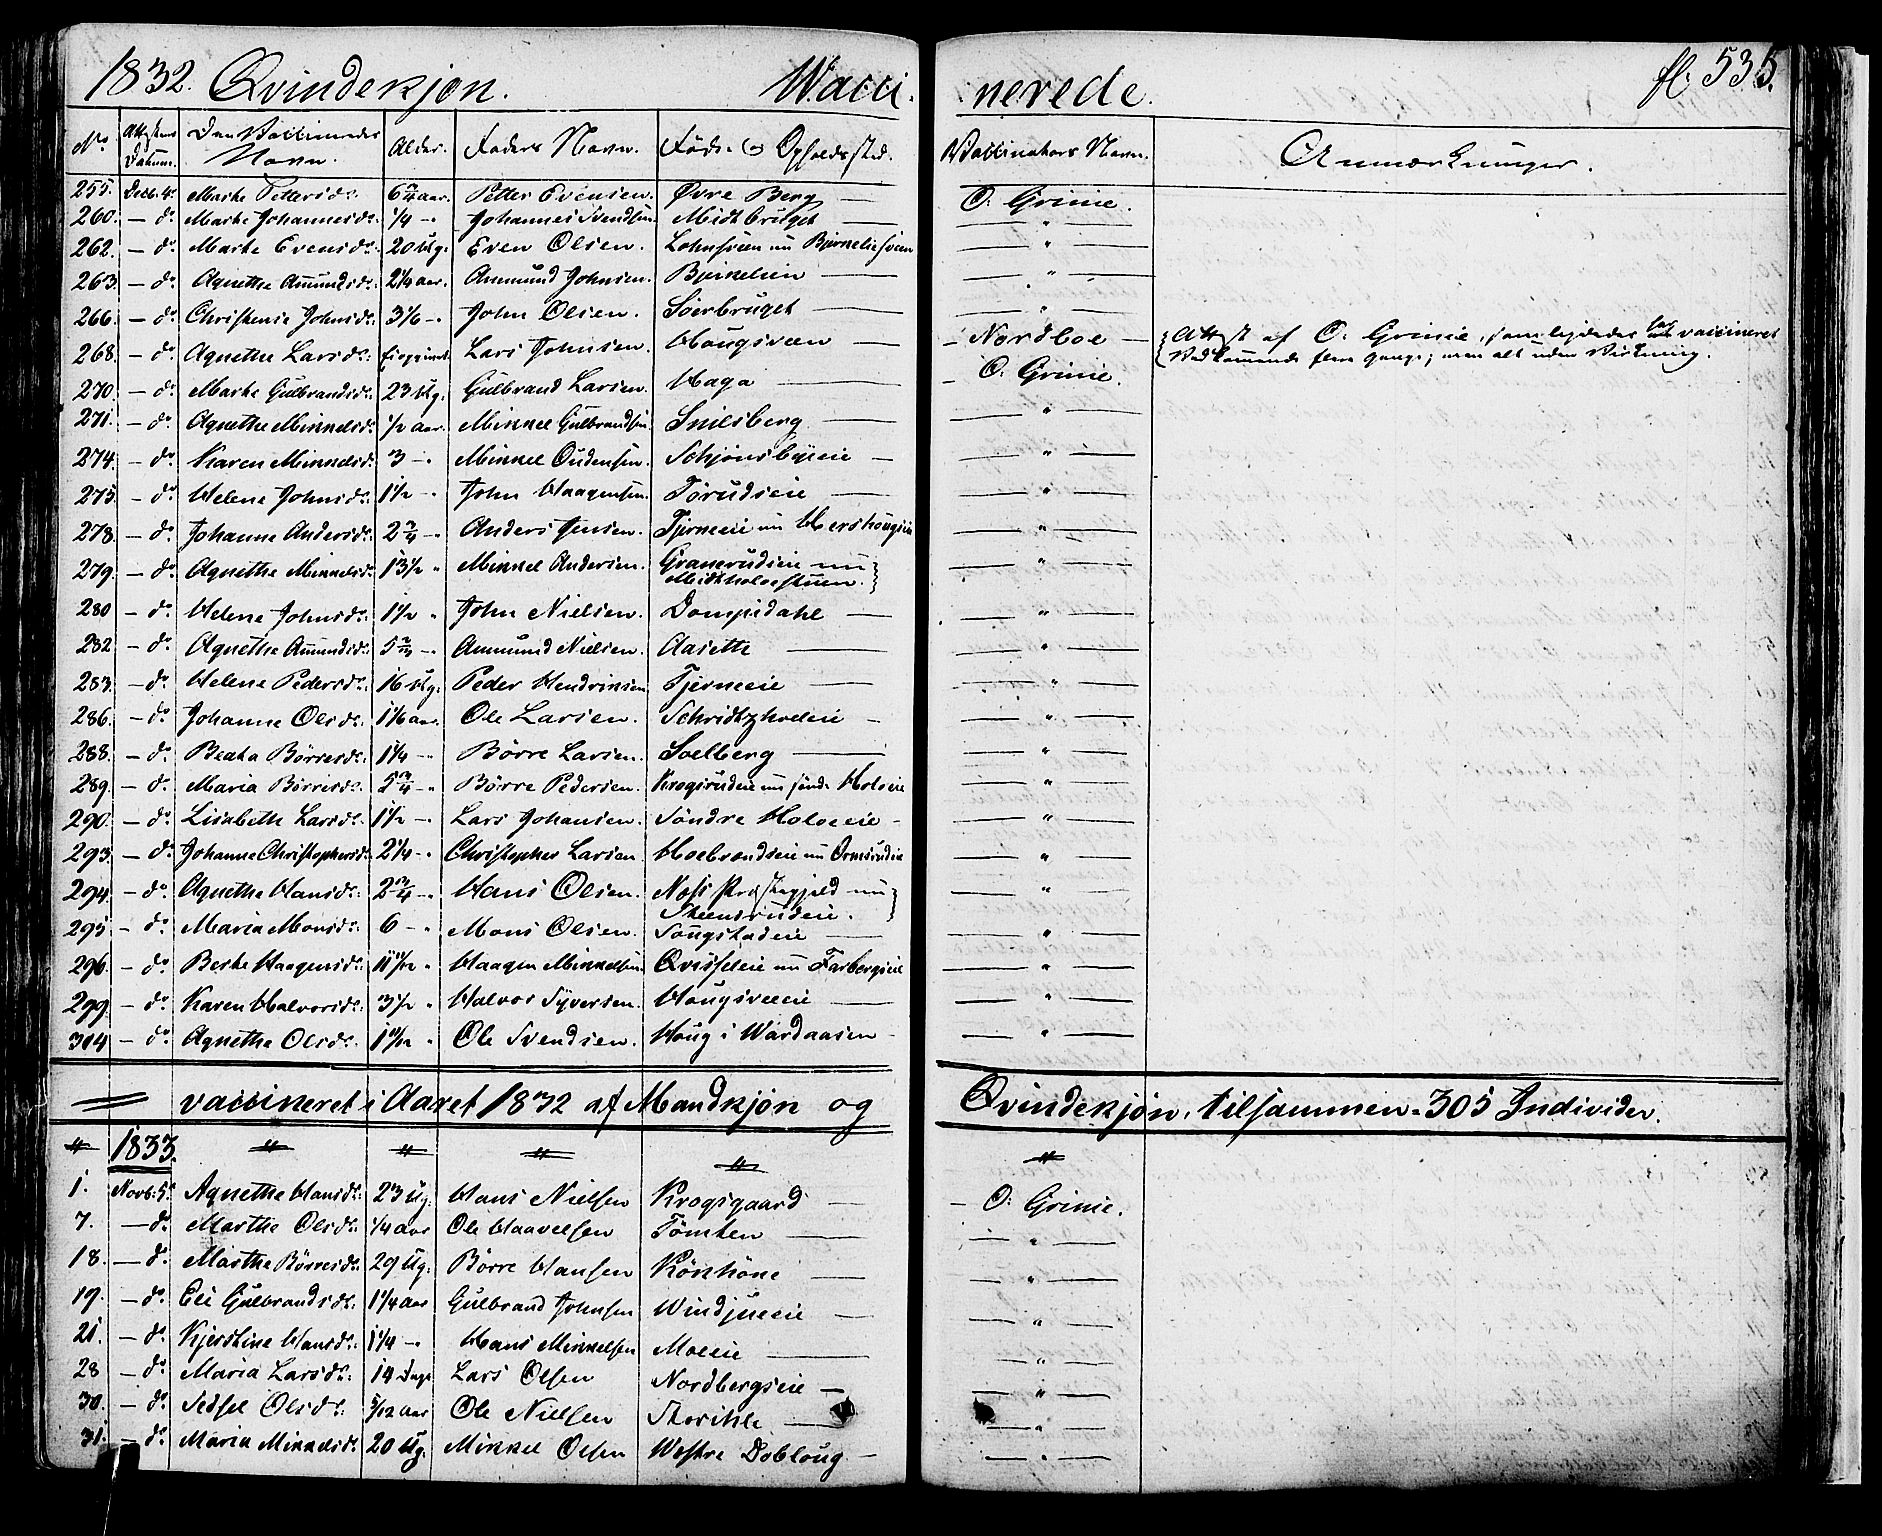 1832. Qvindekjøn. Wacci- nerede. fl. 535.
No. Attestens Datum. Den Vaccineredes Navn. Alder. Faders Navn. Føde- og Opholdssted. Vaccinators Navn. Anmærkninger.
255. Decb. 4de Marthe Pettersdr. 6 3/4 aar. Petter Evensen. Øvre Berg — O. Grime.
260. — do Marthe Johannesdr. 1/4 -" Johannes Svendsen Midtbruget — "
262. — do Marthe Evensdr. 20 Ug. Even Olsen. nu Bjørneliesveen — "
263. — do Agnethe Amundsdr. 2 1/4 aar. Ammund Johnsen. Bjørnelien — "
266. — do Christense Johnsdr. 3 1/6 -" John Olsen. Soerbruget — "
268. — do Agnethe Larsdr. Lars Johnsen. Hougsveen — Nordboe — Attest af O. Grime, som har vaccineret
Vedkommende flere gange; men alt uden Virkning.
270. — do Marthe Gulbrandsdr. 23 Ug. Gulbrand Larsen. Haga — O. Grime.
271. — do Agnethe Mikkelsdr. 1/2 aar. Mikkel Gulbrandsen Snilsberg — "
274. — do Karen Mikkelsdr. 3 -" Mikkel Oudensen. Schjønsbyeie — "
275. — do Helene Johnsdr. 1 1/2 -" John Haagensen. Torudseie — "
278. — do Johanne Andersdr. 2 3/4 -" Anders Jensen. Tjerneeie nu Hershougseie — "
279. — do Agnethe Mikkelsdr. 13 1/2 " Mikkel Andersen. Granerudseie nu
Midtholoestuen. — "
280 — do Helene Johnsdr. 1 1/2 " John Nielsen. Dompidahl — "
282 — do Agnethe Amundsdr. Ammund Nielsen. Aasette — "
283. — do Helene Pedersdr. 16 Ug. Peder Hendriksen Tjerneeie — "
286. — do Johanne Olsdr. 1 1/6 aar. Ole Larsen. — "
288. — do Beatha Børresdr. 1 1/4 -" Børre Larsen. Soelberg — "
289. — do Maria Børresdr. 5 3/4 -" Børre Pedersen. Krogsrudeie nu søndr Holoeie — "
290. — do Lisabethe Larsdr. 1 1/2 -" Lars Johansen. Søndre Holoeeie — "
293. — do Johanne Christophersdr. 2 1/4 -" Christopher Larsen Hoebrendseie nu Ormsrudeie — "
294. — do Agnethe Hansdr. 2 3/4 -" Hans Olsen. Næss Præstegjeld nu
Steensrudeie. — "
295. — do Maria Monsdr. 6 -" Mons Olsen. Sougstadeie — "
296. — do Berthe Haagensdr. 11 11/12 " Haagen Mikkelsen Qvisleeie nu Farbergseie — "
299. — do Karen Halvorsdr. 3 1/2 " Halvor Syversen. Hougsveeie — "
304 — do Agnethe Olsdr. 1 10/12 " Ole Svendsen. Houg i Wardaasen — "
= vaccineret i Aaret 1832 af Mandkjøn og Qvindekjøn, tilsammen = 305 Individer.
" 1833. " " " " "
1. Novb. 5te Agnethe Hansdr. 23 Ug. Hans Nielsen Krogsgaard — O. Grime.
7. — do Marthe Olsdr. 1/4 aar Ole Haavelsen Tømten — "
18. — do Marthe Børresdr. 29 Ug. Børre Hansen — "
19. — do Eli Gulbrandsdr. 1 1/4 aar Gulbrand Johnsen Windjueeie — "
21. — do Kjerstine Hansdr. 1 1/4 -" Hans Mikkelsen Moeeie — "
28 — do Maria Larsdr. 14 Dage Lars Olsen Nordbergseie — "
30. — do Sedsel Olsdr. 5/12 aar Ole Nielsen Storihle — "
31. — do Maria Mikkelsdr. 20 Ug. Mikkel Olsen Westre Dobloug — "